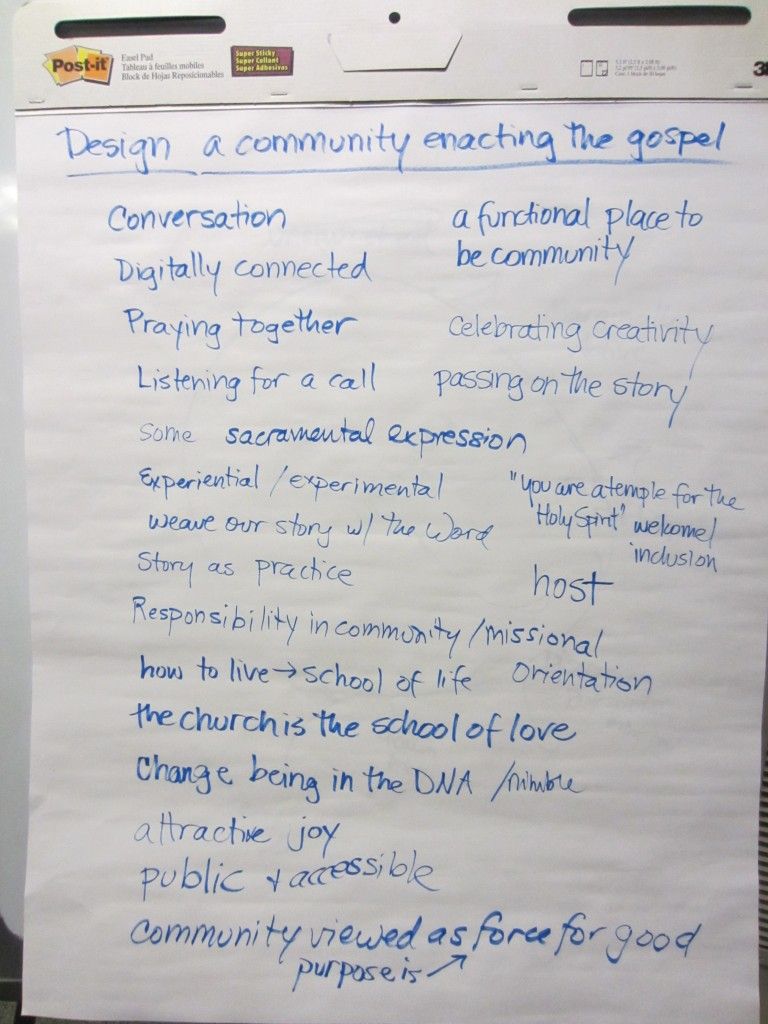 Post-it
Easel Pad
Tableau à feuilles mobiles
Block de Hojas Reposicionables
Super Sticky
Super Collant
Super Adhesivas
3
Design a community enacting the gospel
Conversation
a functional place to
be community
Digitally connected
Praying together
celebrating creativity
Listening for a call
passing on the story
some sacramental expression
Experiential / experimental
"you are a temple for the
Holy Spirit" welcome/
inclusion
weave our story w/ the Word
Story as practice
host
Responsibility in community / missional
Orientation
how to live → school of life
the church is the school of love
Change being in the DNA / nimble
attractive joy
public + accessible
Community viewed as force for good
purpose is ↗